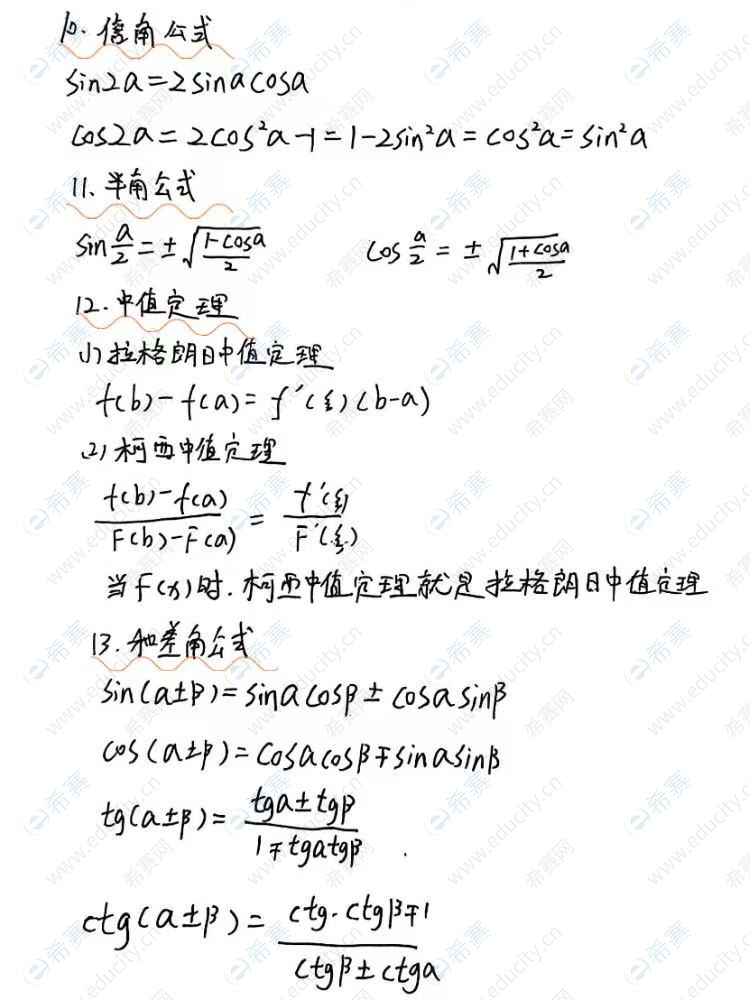 10. 倍角公式
sin2a=2sinacosa
cos2a=2cos²a-1=1-2sin²a=cos²a=sin²a
11. 半角公式
sin a/2=±√(1-cosa)/2  cos a/2=±√(1+cosa)/2
12. 中值定理
(1) 拉格朗日中值定理
f(b)-f(a)=f'(ξ)(b-a)
(2) 柯西中值定理
(f(b)-f(a))/(F(b)-F(a))=f'(ξ)/F'(ξ)
当F(x)时.柯西中值定理就是拉格朗日中值定理
13. 和差角公式
sin(a±β)=sinacosβ±cosasinβ
cos(a±β)=cosacosβ∓sinasinβ
tg(a±β)=(tga±tgβ)/(1∓tgatgβ)
ctg(a±β)=(ctg·ctgβ∓1)/(ctgβ±ctga)
希赛网
www.educity.cn
希赛